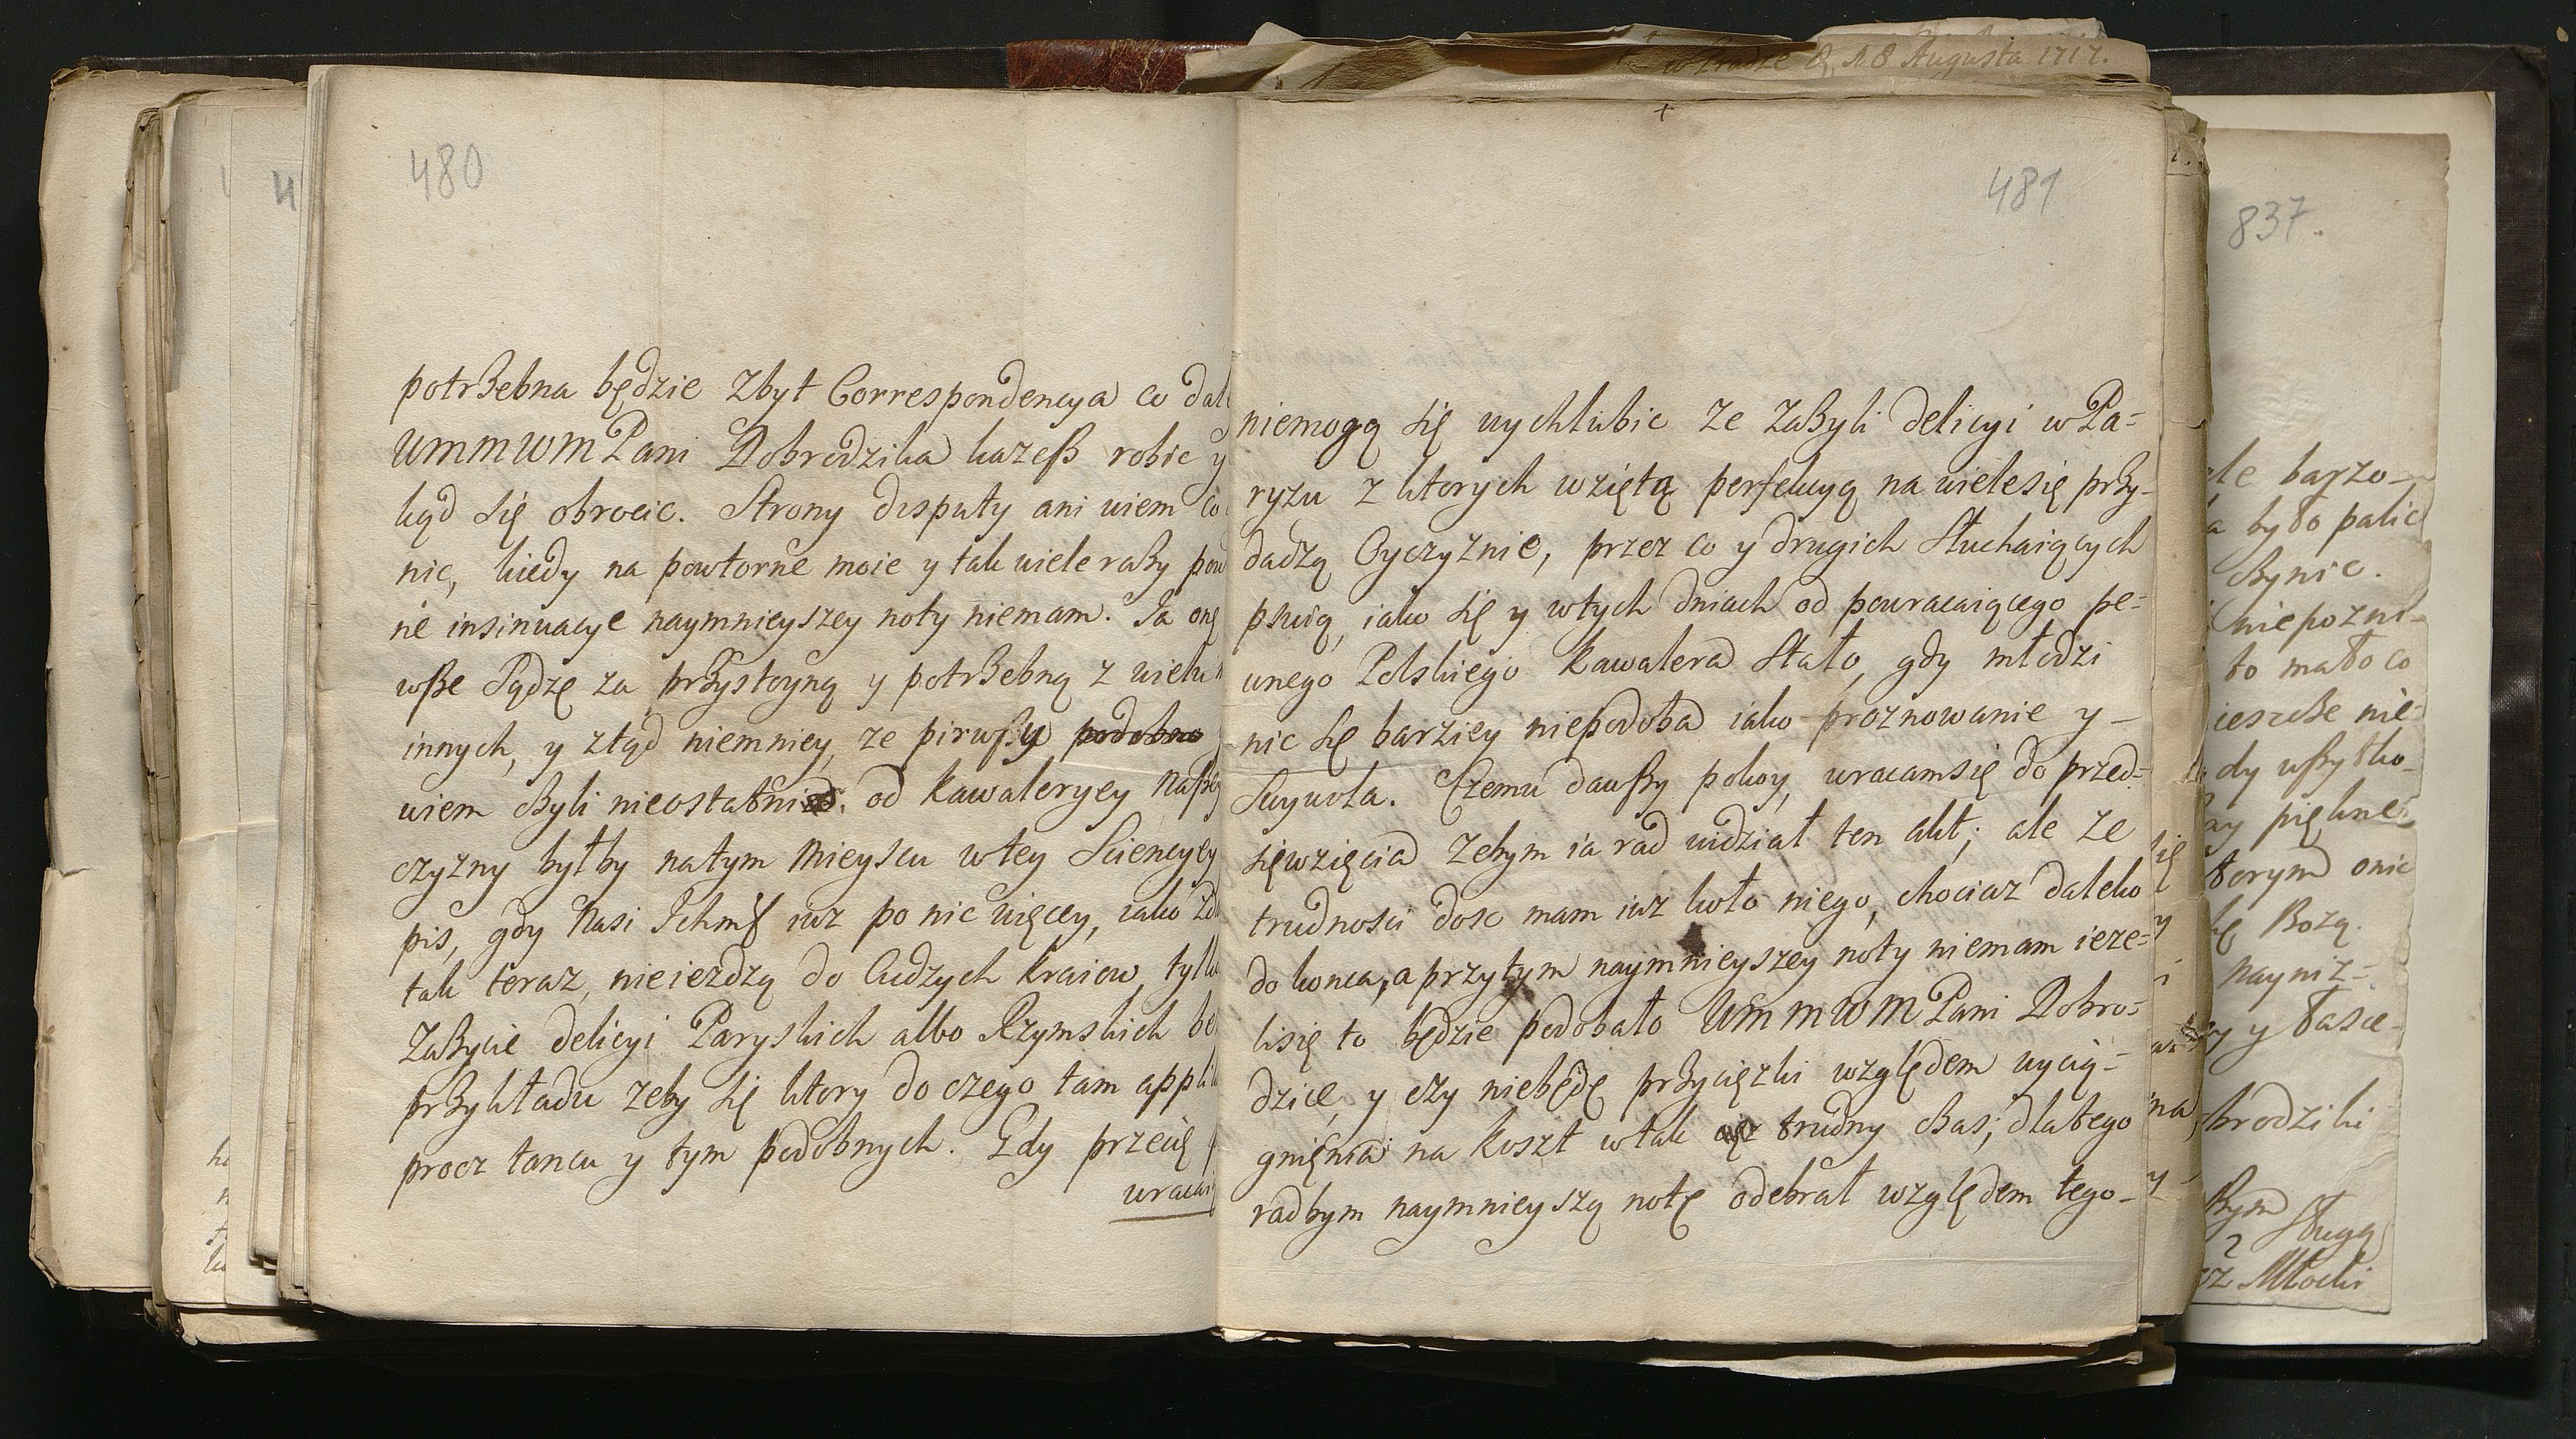 w Pradze d. 18 Augusta 1717.
480
potrzebna będzie zbyt Correspondencya co dal
WMMWMPani Dobrodzika każesz robic y
kąd się obrocic. Strony disputy ani wiem co
nic, kiedy na powtorne moie y tak wiele razy pow
ne insinuacye naymnieyszey noty niemam. Ja onę
wsze Sądzę za przystoyną y potrzebną z wielu
innych, y ztąd niemniey, ze pirwszy podobno
wiem Byli nieostatni od kawaleryey naszey
czyzny byłby natym mieyscu wtey Sciencyey
pis, gdy nasi Ichmć iuz po nic więcey, iako
tak teraz, nieiezdzą do Cudzych kraiow, tylko
zazycie delicyi Paryskich albo Rzymskich be
przykładu zeby się ktory do czego tam appli
procz tancu y tym podobnych. Gdy przecię
wracai
481
niemogą się wychlubic ze zazyli delicyi w Pa-
ryzu z ktorych wziętą perfekcyą na wielesię przy-
dadzą Oyczyznie, przez co y drugich Słuchaiących
psuią, iako się y wtych dniach od powracaiącego pe-
wnego Polskiego kawalera Stało, gdy młodzi
nic się barziey niepodoba iako proznowanie y-
Swywola. Czemu dawszy pokoy, wracamsię do przed-
sięwzięcia zebym ia rad widział ten akt; ale ze
trudnosci dosc mam iuz koło niego, chociaz daleko
do konca, a przytym naymnieyszey noty niemam ieze-
lisię to będzie podobało WMMWMPani Dobro-
dzice, y czy niebędę przycięzki względem wycią-
gnięnia na koszt w tak trudny czas; dlatego
radbym naymnieyszą notę odebrał względem tego-
837.
ale barzo-
było palic
czynic.
niepozni-
to mało co
ieszcze nie-
dy wszytko-
piękne-
ktorym onic
Bozą.
nayniz-
y łasce-
brodziki
Sługą
Młocki